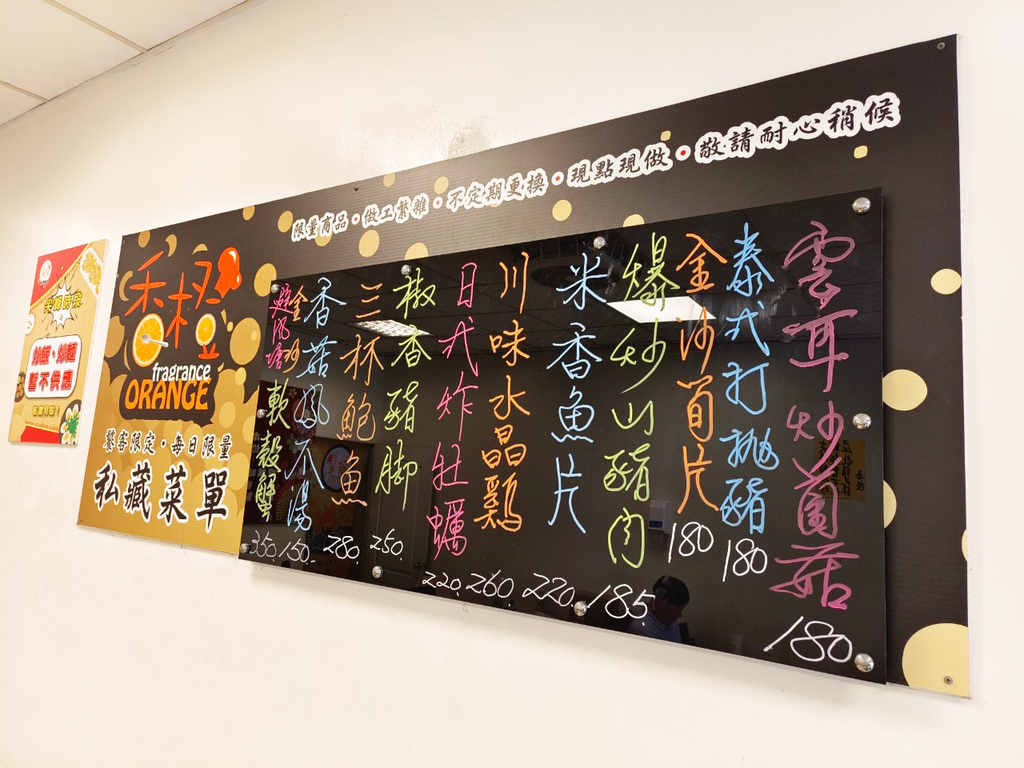 限量商品·做工繁雜·不定期更換·現點現做·敬請耐心稍候
禾橙
fragrance
ORANGE
饕客限定·每日限量
私藏菜單
雲耳炒菌菇
180
泰式打拋豬
180
金沙筍片
180
爆炒山豬肉
185.
米香魚片
220.
川味水晶鷄
260.
日式炸牡蠣
220.
椒香豬脚
250.
三杯鮑魚
280.
香菇鳳爪湯
150.
金沙
避風塘
軟殼蟹
350.
炒飯、炒麵
暫不供應